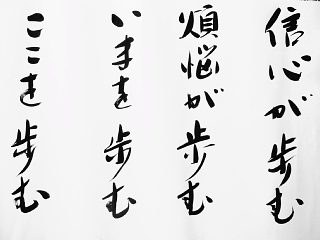 信心が歩む
煩悩が歩む
いまを歩む
ここを歩む